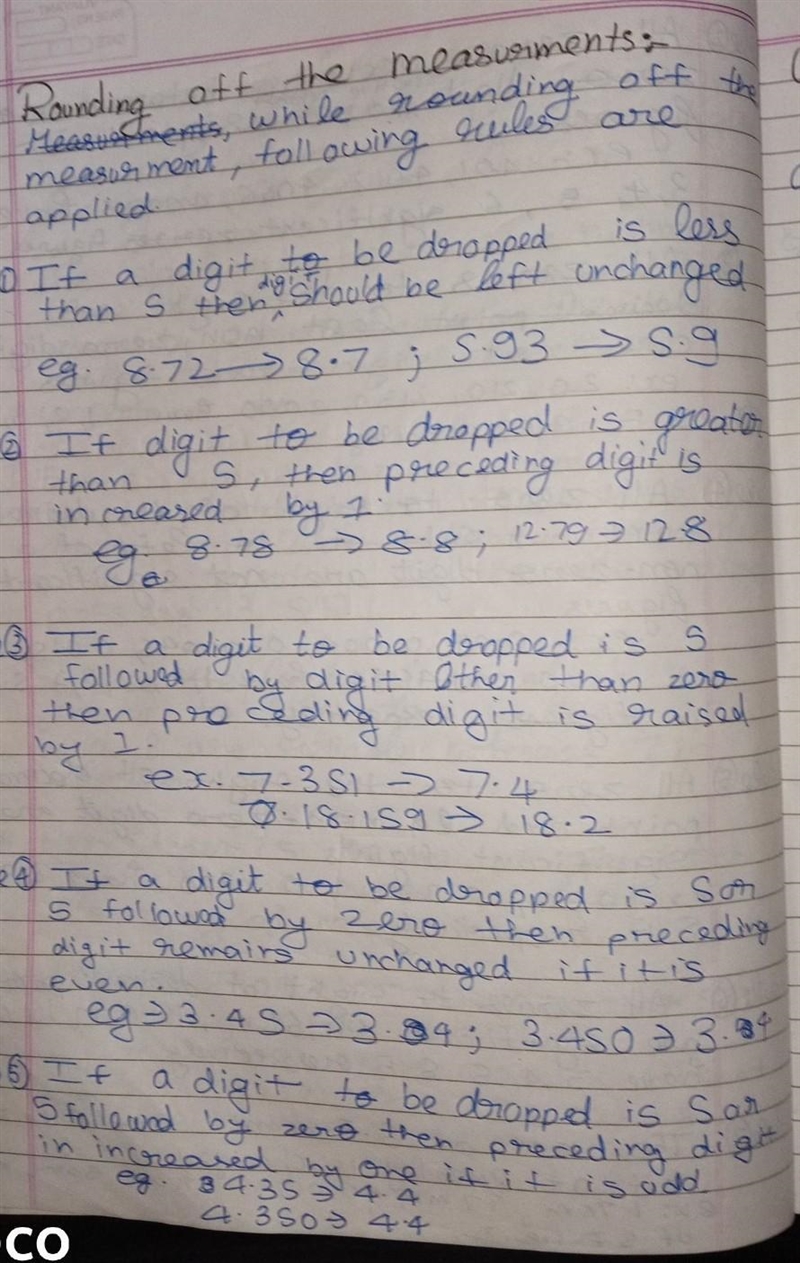 Rounding off the measurments:-
Measurments, while rounding off the
measurment, following rules are
applied.
① If a digit to be dropped is less
than 5 then digit should be left unchanged
eg. 8.72 → 8.7 ; 5.93 → 5.9
② If digit to be dropped is greater
than 5, then preceding digit is
increased by 1.
eg. 8.78 → 8.8 ; 12.79 → 12.8
③ If a digit to be dropped is 5
followed by digit Other than zero
then preceding digit is raised
by 1.
ex. 7.351 → 7.4
18.159 → 18.2
④ If a digit to be dropped is 5 or
5 followed by zero then preceding
digit remairs unchanged if it is
even.
eg ⇒ 3.45 ⇒ 3.4 ; 3.450 ⇒ 3.4
⑤ If a digit to be dropped is 5 or
5 followed by zero then preceding digit
in increased by one if it is odd
eg. 4.35 ⇒ 4.4
4.350 ⇒ 4.4
CO